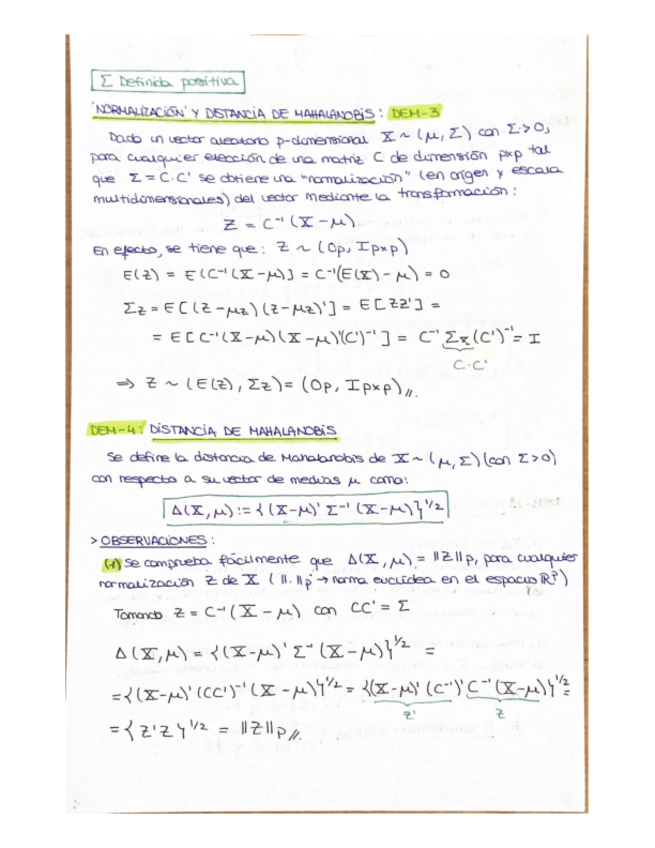 Σ Definida positiva
'NORMALIZACIÓN' Y DISTANCIA DE MAHALANOBIS: DEM-3
Dado un vector aleatorio p-dimensional X ~ (μ, Σ) con Σ>0,
para cualquier elección de una matriz C de dimensión pxp tal
que Σ = C·C' se obtiene una "normalización" (en origen y escala
multidimensionales) del vector mediante la transformación:
Z = C⁻¹(X-μ)
En efecto, se tiene que: Z ~ (0p, Ipxp)
E(Z) = E(C⁻¹(X-μ)] = C⁻¹(E(X)-μ) = 0
Σz = E[(Z-μz)(Z-μz)'] = E[ZZ'] =
= E[C⁻¹(X-μ)(X-μ)'(C')⁻¹] = C⁻¹ Σx (C')⁻¹ = I
C·C'
⇒ Z ~ (E(Z), Σz) = (0p, Ipxp)//.
DEM-4: DISTANCIA DE MAHALANOBIS
Se define la distancia de Mahalanobis de X ~ (μ, Σ) (con Σ>0)
con respecto a su vector de medias μ como:
Δ(X, μ) := {(X-μ)' Σ⁻¹ (X-μ)}^1/2
> OBSERVACIONES:
(1) Se comprueba fácilmente que Δ(X, μ) = ||Z||p, para cualquier
normalización Z de X (||.||p → norma euclídea en el espacio ℝᵖ)
Tomando Z = C⁻¹(X-μ) con CC' = Σ
Δ(X, μ) = {(X-μ)' Σ⁻¹ (X-μ)}^1/2 =
= {(X-μ)' (CC')⁻¹ (X-μ)}^1/2 = {(X-μ)' (C⁻¹)' C⁻¹ (X-μ)}^1/2 =
Z' Z
= {Z'Z}^1/2 = ||Z||p//.